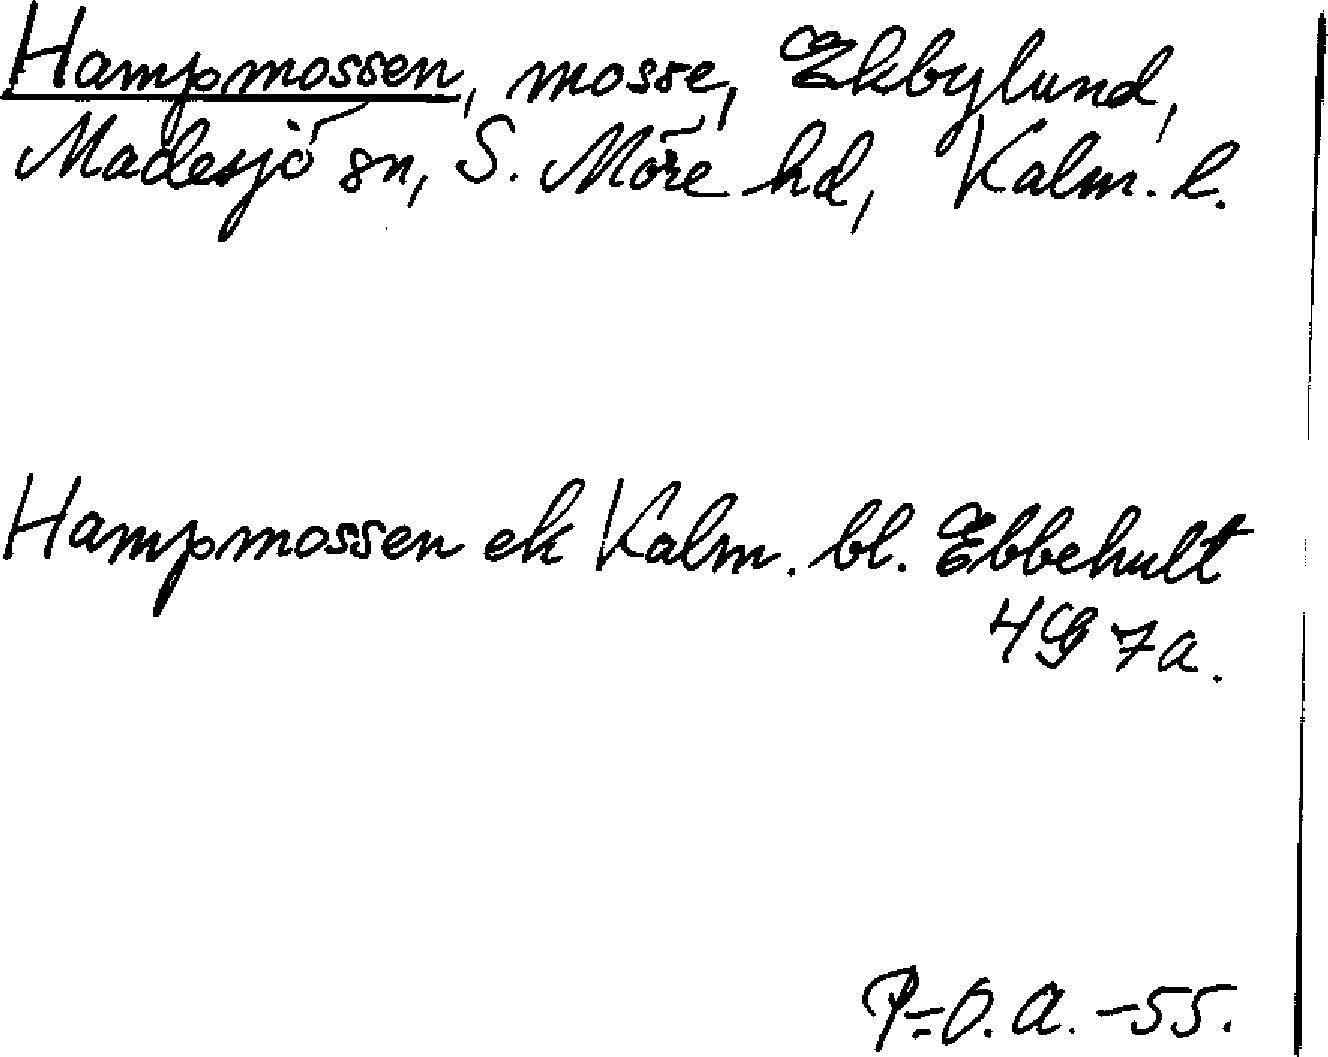 Hampmossen, mosse, Ekbylund,
Madesjö sn, S. Möre hd, Kalm. l.
Hampmossen ek Kalm. bl. Ebbehult
4G 7a.
P-O. A. -55.